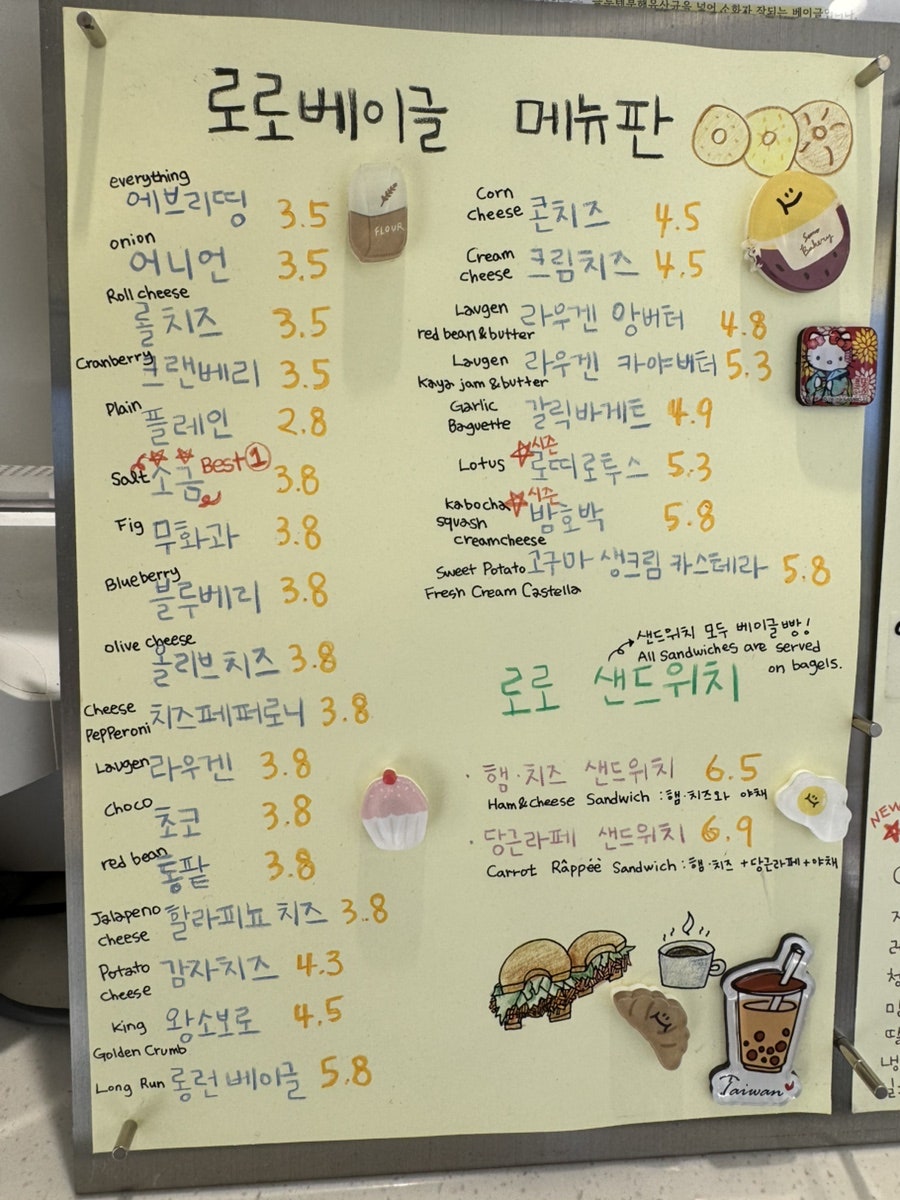 로로베이글 메뉴판
everything
에브리띵 3.5
onion
어니언 3.5
Roll cheese
롤치즈 3.5
Cranberry
크랜베리 3.5
Plain
플레인 2.8
Salt 소금 Best 1 3.8
Fig 무화과 3.8
Blueberry
블루베리 3.8
olive cheese
올리브치즈 3.8
Cheese
PepPeroni 치즈페퍼로니 3.8
Laugen 라우겐 3.8
choco
초코 3.8
red bean
통팥 3.8
Jalapeno
cheese 할라피뇨치즈 3.8
Potato
cheese 감자치즈 4.3
King 왕소보로 4.5
Golden Crumb
Long Run 롱런베이글 5.8
Corn
cheese 콘치즈 4.5
Cream
cheese 크림치즈 4.5
Laugen 라우겐 앙버터 4.8
red bean & butter
Laugen 라우겐 카야버터 5.3
kaya jam & butter
Garlic
Baguette 갈릭바게트 4.9
시즌
Lotus 로띠로투스 5.3
시즌
kabocha
squash 밤호박 5.8
creamcheese
Sweet Potato 고구마 생크림 카스테라 5.8
Fresh Cream Castella
샌드위치 모두 베이글빵!
All Sandwiches are served
on bagels.
로로 샌드위치
· 햄·치즈 샌드위치 6.5
Ham&cheese Sandwich : 햄·치즈와 야채
· 당근라페 샌드위치 6.9
Carrot Râppéè Sandwich : 햄·치즈+당근라페+야채
FLOUR
Bakery
Taiwan
NEW